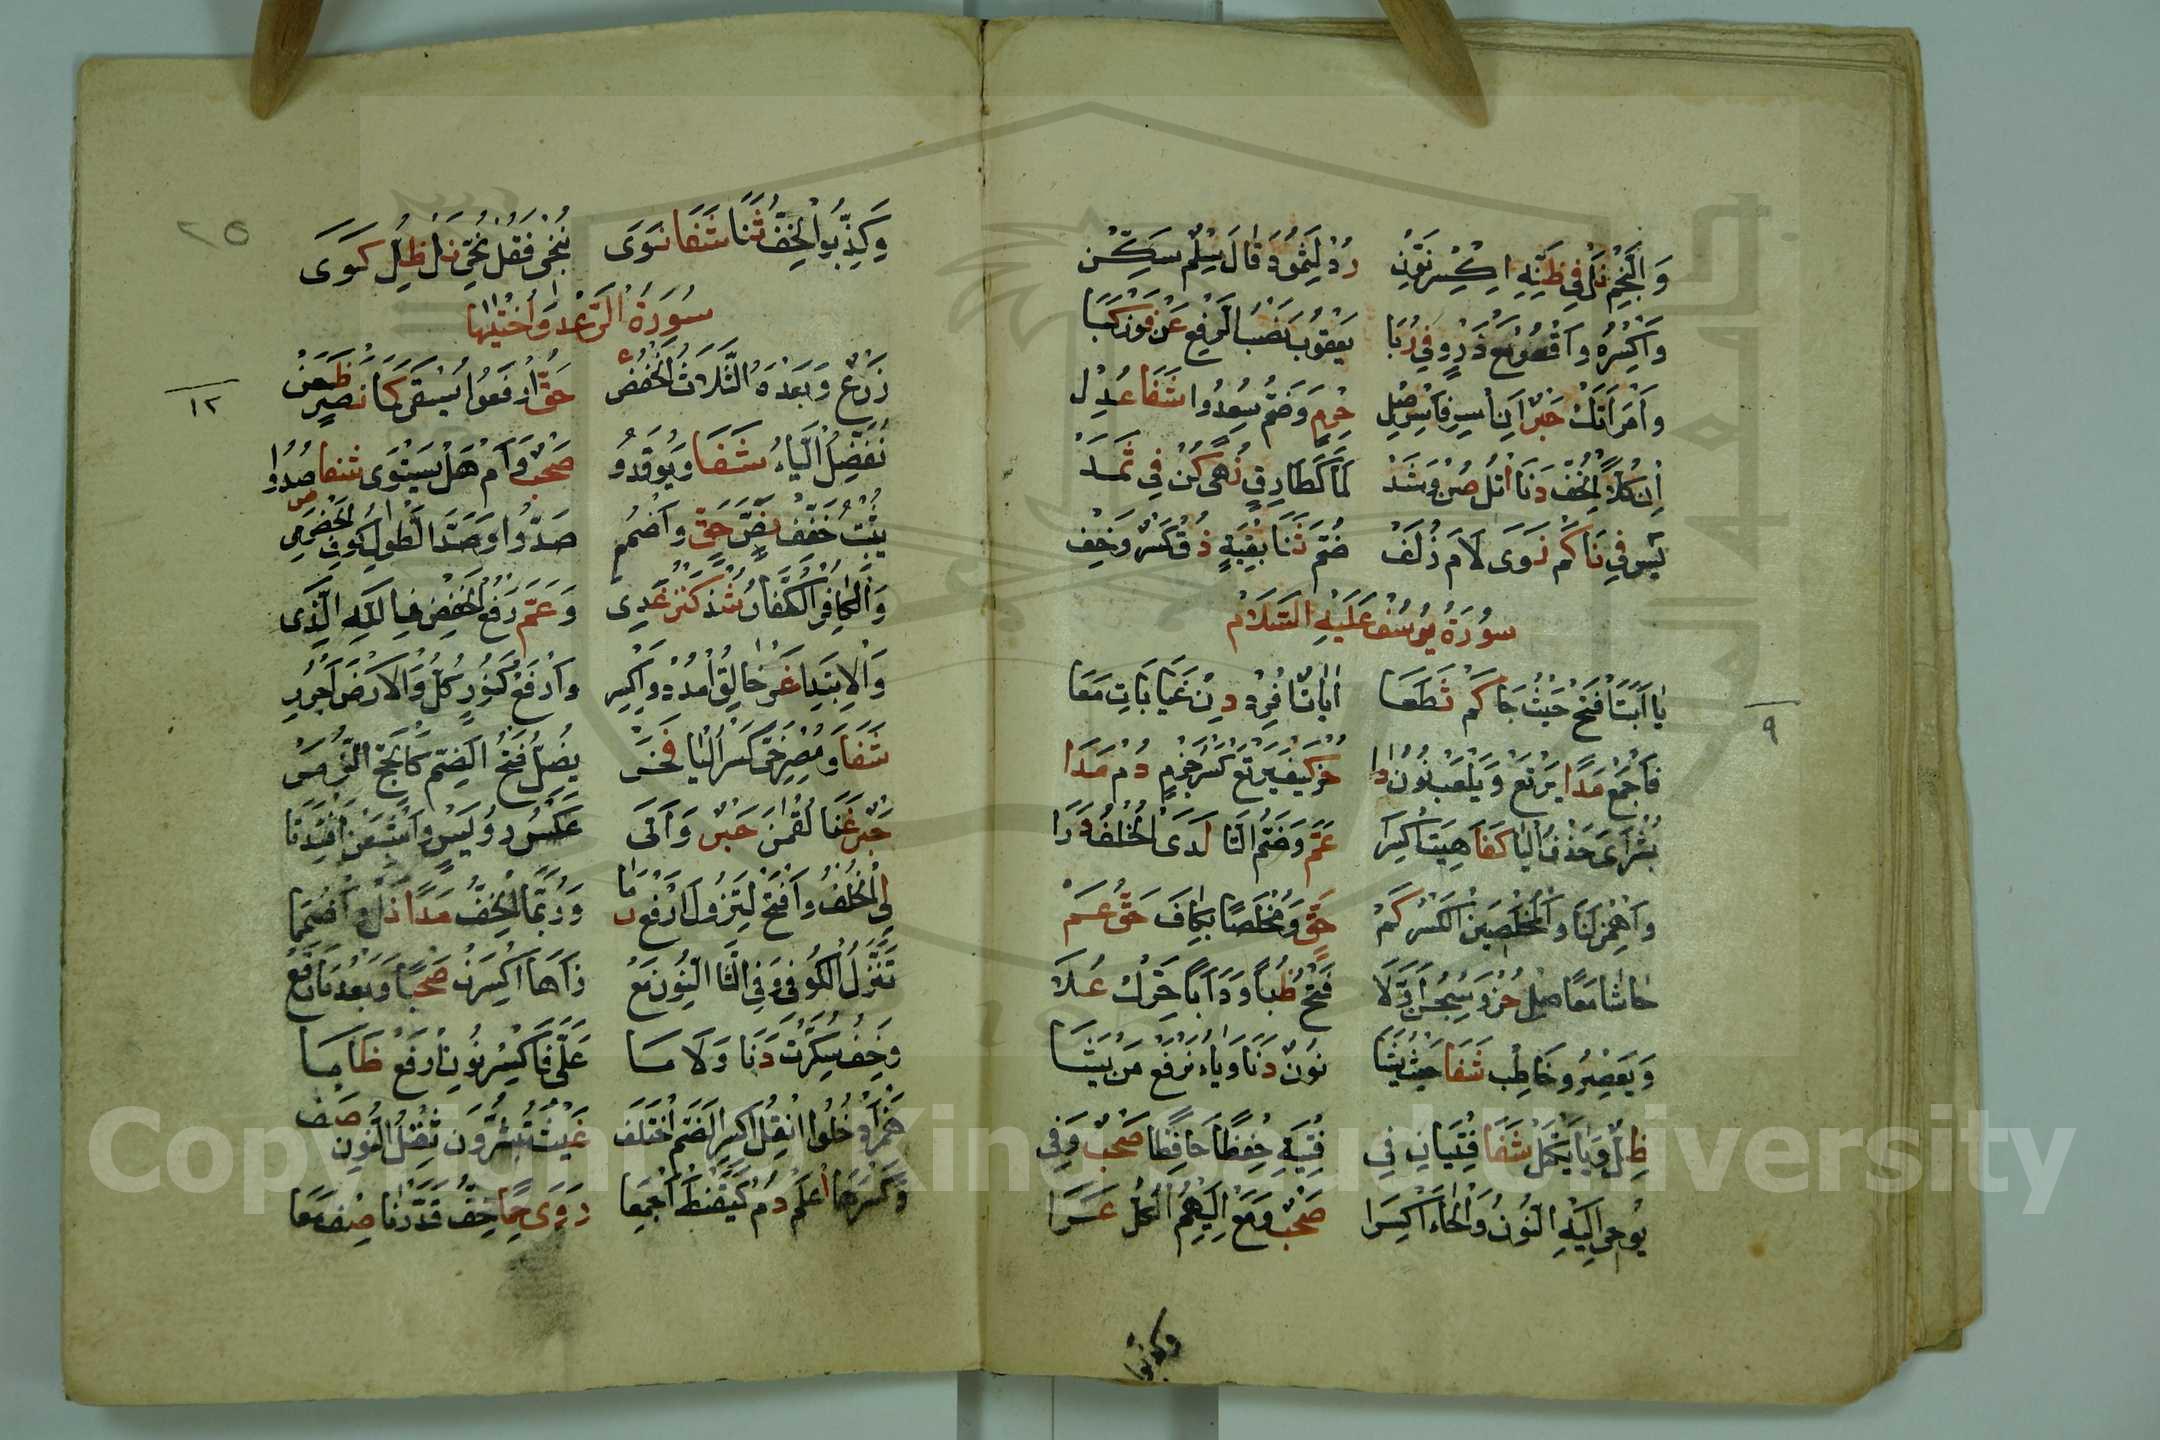 وَالنَّجْمِ نَلْ فِي ظَنِّهِ اكْسِرْ نَوِّنِ رُدْ لِثَمُودَ قَالَ سِلْمٌ سَكِّنِ
وَاكْسِرْهُ وَاقْصُرْ مَعَ ذَرْوٍ فِي رُبَا يَعْقُوبَ نَصْبُ الرَّفْعِ عَنْ فَوْزٍ كَبَا
وَامْرَأَتُكْ حَبْرٌ أَنِ اسْرِ فَاسْرِ صِلْ حِرْمٍ وَضُمَّ سُعِدُوا شَفَا عُدِلْ
إِنْ كُلًّا الْخِفُّ دَنَا اتْلُ صُنْ وَشَدْ لَمَّا كَطَارِقٍ نُهًى كُنْ فِي ثَمَدْ
يٰسٓ فِي ذَا كَمْ نَوَى لَامَ زُلَفْ ضُمَّ ثَنَا بِقْيَةٍ ذُقْ كَسْرٌ وَخِفْ
سُورَةُ يُوسُفَ عَلَيْهِ السَّلَامْ
يَا أَبَتَ افْتَحْ حَيْثُ جَا كَمْ ثَطَعَا آيَاتٌ افْرِدْ دِنْ غَيَابَاتِ مَعَا
٩
فَاجْمَعْ مَدًا يَرْتَعْ وَيَلْعَبْ نُونُ دَا حُزْ كَيْفَ يَرْتَعْ كَسْرُ جَزْمٍ دُمْ مَدَا
بُشْرَايَ حَذْفُ الْيَا كَفَا هِيتَ اكْسِرَا عَمَّ وَضَمُّ التَّا لَدَى الْخُلْفُ دَرَا
وَاهْمِزْ لَنَا وَالْمُخْلِصِينَ الْكَسْرُ كَمْ حَقٌّ وَمُخْلِصًا بِكَافَ حَقُّ عَمْ
حَاشَا مَعًا صِلْ حُزْ وَسِجْنُ أَوَّلَا فَتْحُ ظُبًا وَدَأَبًا حَرِّكْ عُلَا
وَيَعْصِرُو خَاطِبْ شَفَا حَيْثُ يَشَا نُونٌ دَنَا وَيَاءُ نَرْفَعْ مَنْ يَشَا
ظِلٌّ وَيَا يَكْتَلْ شَفَا فِتْيَانِ فِي فِتْيَةِ حِفْظًا حَافِظًا صَحْبٌ وَفِي
يُوحَى إِلَيْهِ النُّونُ وَالْحَاءَ اكْسِرَا صَحْبٌ وَمَعْ إِلَيْهِمُ الْكُلُّ عَرَا
وكذبوا
٢٥
وَكُذِّبُوا الْخِفُّ ثَنَا شَفَا نَوَى نُنْجِي فَقُلْ نُجِّيَ نَلْ ظِلَّ كَوَى
سُورَةُ الرَّعْدِ وَأُخْتَيْهَا
زَرْعٌ وَبَعْدَهُ الثَّلَاثُ الْخَفْضُ عَنْ حَقٍّ ارْفَعُوا يُسْقَى كَمَا نَصْرٍ ظَعَنْ
١٢
نُفَضِّلُ الْيَاءُ شَفَا وَيُوقِدُو صَحْبٌ وَأَمْ هَلْ يَسْتَوِي شَفَا صُدُوا
يُثْبِتُ خَفِّفْ نَصُّ حَقٍّ وَاضْمُمِ صَدُّوا وَصُدَّ الطَّوْلِ كُوفِ الْحَضْرَمِي
وَالْكَافِرُ الْكُفَّارُ شُدْ كَنْزًا غُذِي وَعَمَّ رَفْعُ الْخَفْضِ فِي اللّٰهِ الَّذِي
وَالِابْتِدَا غَرْ خَالِقُ امْدُدْ وَاكْسِرِ وَارْفَعْ كَنُورٍ كُلُّ وَالْأَرْضَ اجْرُرِ
شَفَا وَمُصْرِخِيَّ كَسْرُ الْيَا فَخَرْ يُضِلُّ فَتْحُ الضَّمِّ كَالْحَجِّ الزُّمَرْ
حَبْرٌ غِنَا لُقْمٰنَ حَبْرٌ وَأَتَى عَكْسُ رُوَيْسٍ وَاشْبِعَنْ أَفْئِدَتَا
لِي الْخُلْفُ وَافْتَحْ لِتَزُولَ ارْفَعْ رَمَا وَرُبَمَا الْخِفُّ مَدًا نَلْ وَاضْمُمَا
تَنَزَّلُ الْكُوفِي وَفِي التَّا النُّونُ مَعْ زَاهَا اكْسِرَنْ صَحْبًا وَبَعْدُ مَا رَفَعْ
وَخِفُّ سُكِّرَتْ دَنَا وَلَامَا عَلَيَّ فَاكْسِرْ نَوِّنِ ارْفَعْ ظَامَا
هَمْزَ ادْخُلُوا انْقُلْ اكْسِرِ الضَّمَّ اخْتَلَفْ غَيْثٌ تُبَشِّرُونَ ثِقْلُ النُّونِ صِفْ
وَكَسْرُهَا اعْلَمْ دُمْ كَيَقْنَطُ اجْمَعَا رَوَى حِمًا خِفُّ قَدَرْنَا صِفْ مَعَا
Copyright © King Saud University